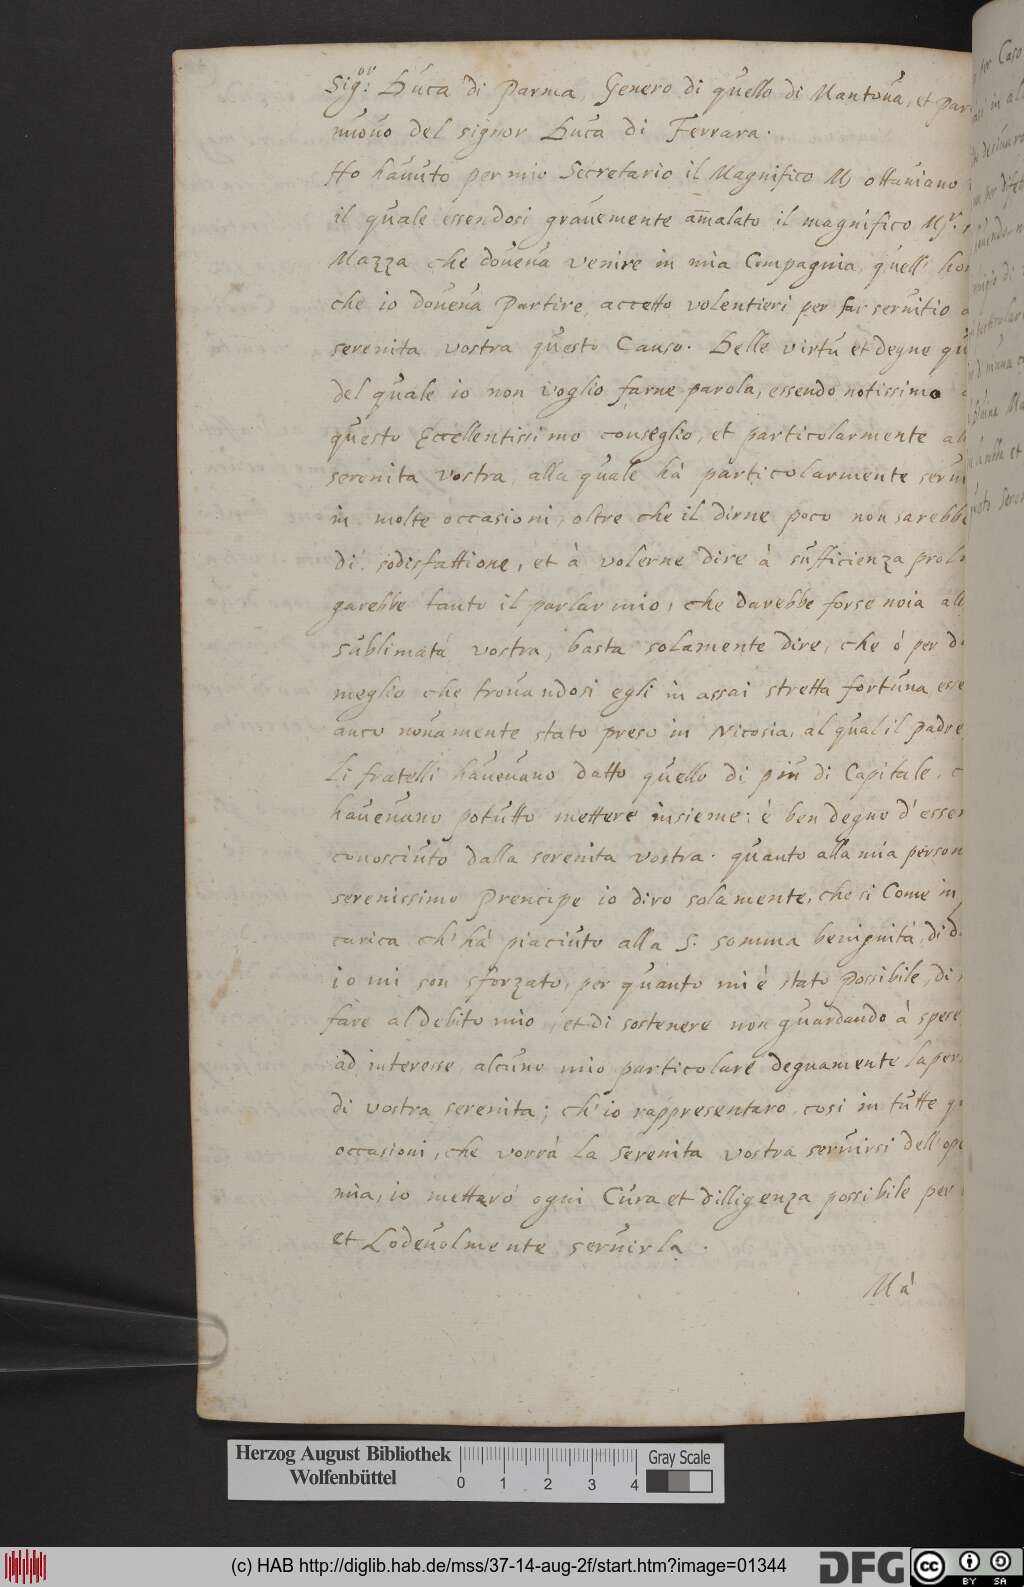 Sig.or Duca di Parma, Genero di quello di Mantova, et par
nuovo del signor Duca di Ferrara.
Ho havuto per mio Secretario il Magnifico M. ottaviano
il quale essendosi gravemente am̄alato il magnifico M.r
Mazza che doveva venire in mia Compagnia, quell' hor
che io doveva Partire, accetto volentieri per far servitio a
serenita vostra questo Causo. Delle virtù et degne qu
del quale io non voglio farne parola, essendo notissimo
questo Eccellentissimo conseglio, et particolarmente al
serenita vostra, alla quale hà particolarmente serui
in molte occasioni, oltre che il dirne poco non sarebbe
di sodisfattione, et à volerne dire à sufficienza prol
garebbe tanto il parlar mio, che darebbe forse noia all
sublimatà vostra, basta solamente dire, che ò per di
meglio che trovandosi egli in assai stretta fortuna esse
anco novamente stato preso in Nicosia, al qual il padre
Li fratelli havevano datto quello di più di Capitale,
havevano potutto mettere insieme: è ben degno d'esser
conosciuto dalla serenita vostra. quanto alla mia person
serenissimo Prencipe io diro solamente, che si Come in
carica ch' hà piaciuto alla S. somma benignità, di d
io mi son sforzato, per quanto mi è stato possibile, di
fare al debito mio, et di sostenere non guardando à spese
ad interesse alcuno mio particolare degnamente la per
di vostra serenita; ch' io rappresentaro, cosi in tutte q
occasioni, che vorrà la serenita vostra servirsi dell' ope
mia, io mettarò ogni Cura et dilligenza possibile per
et Lodevolmente servirla.
Mà
Herzog August Bibliothek
Wolfenbüttel
0 1 2 3 4
Gray Scale
(c) HAB http://diglib.hab.de/mss/37-14-aug-2f/start.htm?image=01344
DFG
cc BY SA